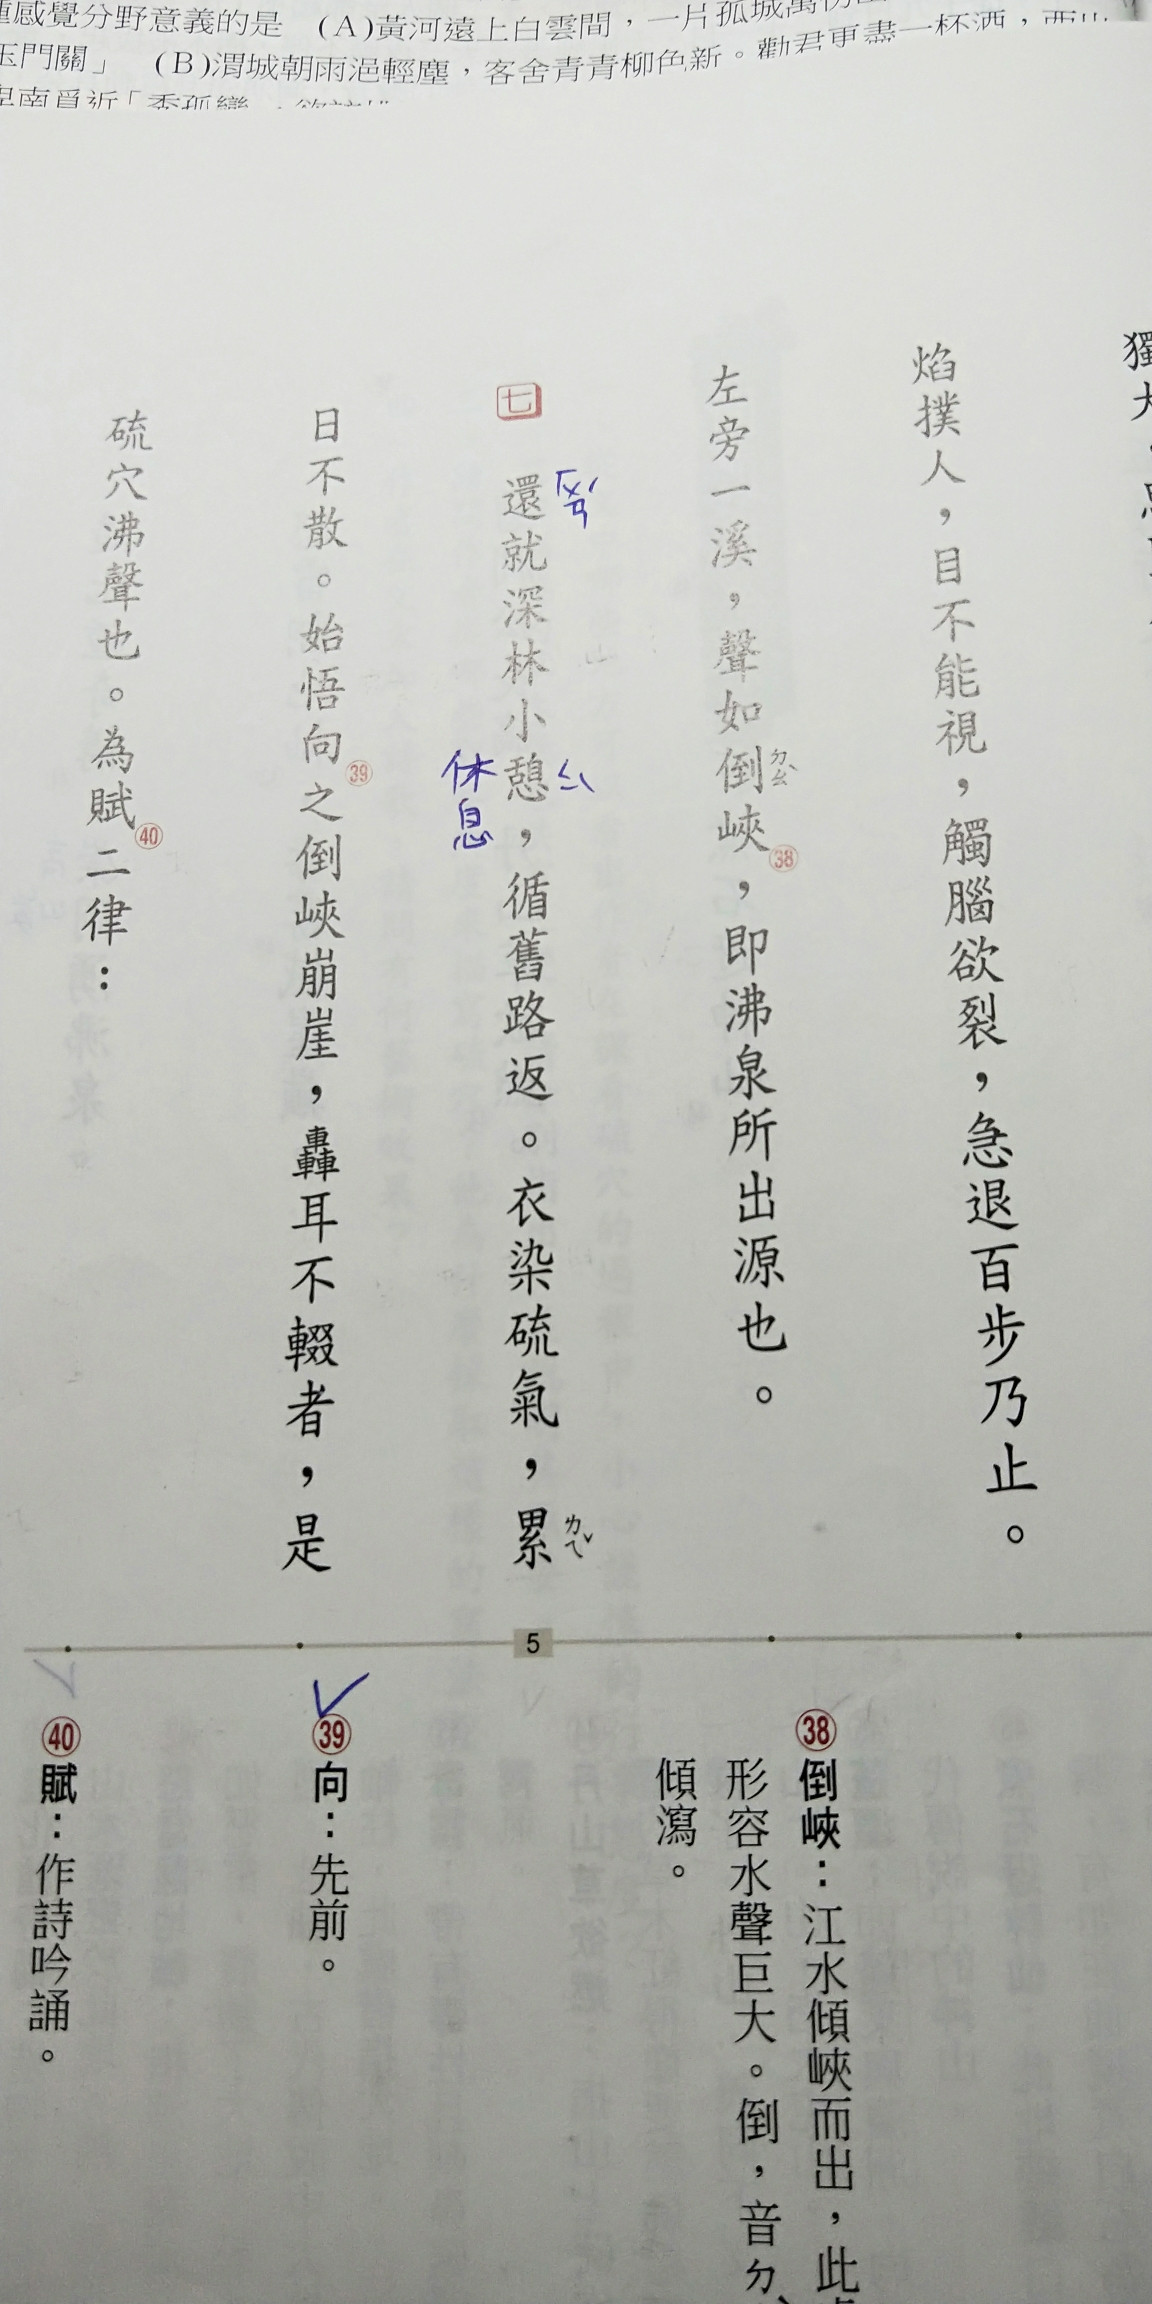 感覺分野意義的是　(A)黃河遠上白雲間，一片孤城萬
玉門關」　(B)渭城朝雨浥輕塵，客舍青青柳色新。勸君更盡一杯酒，西
獨大，
焰撲人，目不能視，觸腦欲裂，急退百步乃止。
左旁一溪，聲如倒ㄉㄠˋ峽㊳，即沸泉所出源也。
七　還就深林小憩，循舊路返。衣染硫氣，累ㄌㄟˇ
ㄒㄩㄢˊ
ㄑㄧˋ
休息
日不散。始悟向㊴之倒峽崩崖，轟耳不輟者，是
硫穴沸聲也。為賦㊵二律：
5
㊳倒峽：江水傾峽而出，此
形容水聲巨大。倒，音ㄉ
傾瀉。
㊴向：先前。
㊵賦：作詩吟誦。